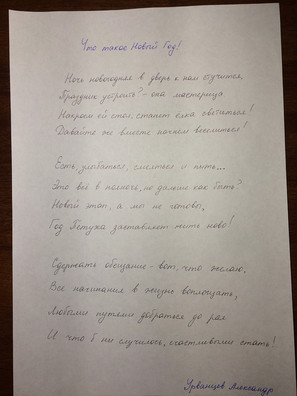 Что такое Новый Год!
Ночь новогодняя в дверь к нам стучится,
Праздник устроить? - она мастерица
Накроем ей стол, станет елка светиться!
Давайте же вместе начнем веселиться!
Есть, улыбаться, смеяться и пить...
Это всё в полночь, но дальше как быть?
Новый этап, а мы не готовы,
Год Петуха заставляет жить ново!
Сдержать обещание - вот, что желаю,
Все начинания в жизнь воплощать,
Любыми путями добраться до рая
И что б ни случилось, счастливыми стать!
Урванцев Александр